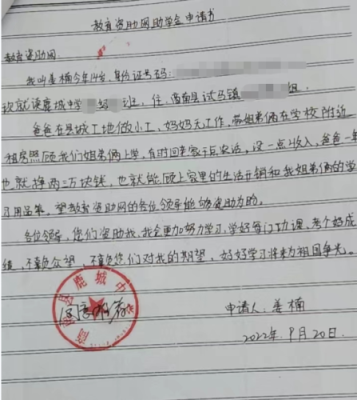 教育资助网助学金申请书
教育资助网:
我叫姜楠今年14岁,身份证号码:
现就读鹿城中学 班,住 商南县试马镇 组,
爸爸在县城工地做小工,妈妈无工作,带姐弟俩在学校附近
租房照顾我们姐弟俩上学,有时回老家干点农活,没一点收入,爸爸一年
也就挣两三万块钱,也就能顾上家里的生活开销和我姐弟俩的学
习用品,望教育资助网的各位领导能够资助为盼。
各位领导,您们资助我,我会更加努力学习,学好每门功课,考个好成
绩,不辜负众望,不辜负您们对我的期望,好好学习将来为祖国争光。
鹿城中
申请人:姜楠
2022年9月20日.